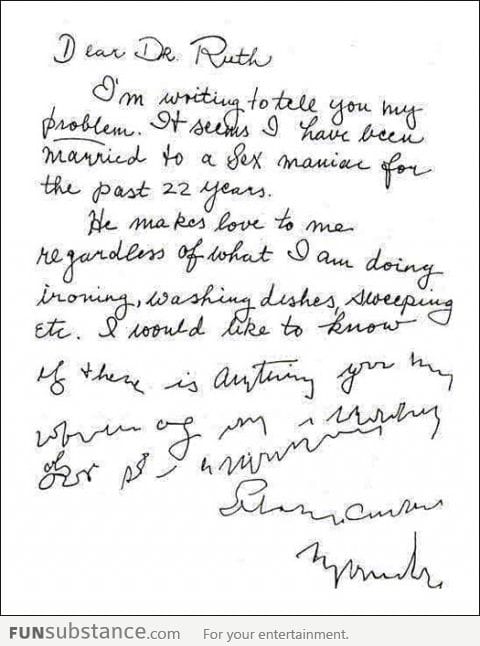 Dear Dr. Ruth
I'm writing to tell you my
problem. It seems I have been
married to a sex maniac for
the past 22 years.
He makes love to me
regardless of what I am doing
ironing, washing dishes, sweeping
etc. I would like to know
if there is anything you my
FUNsubstance.com For your entertainment.